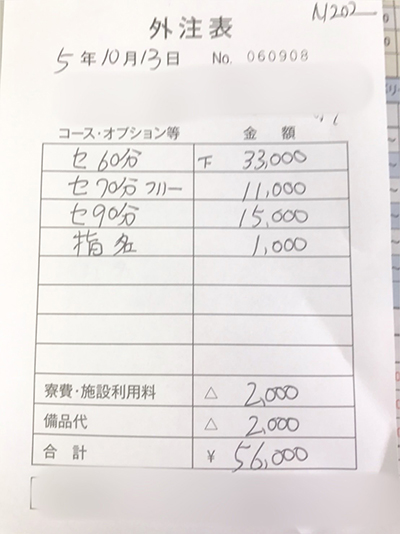 N202
外注表
5年10月13日 No. 060908
コース・オプション等 金額
セ60分 下 33,000
セ70分 フリー 11,000
セ90分 15,000
指名 1,000
寮費・施設利用料 △ 2,000
備品代 △ 2,000
合計 ¥ 56,000